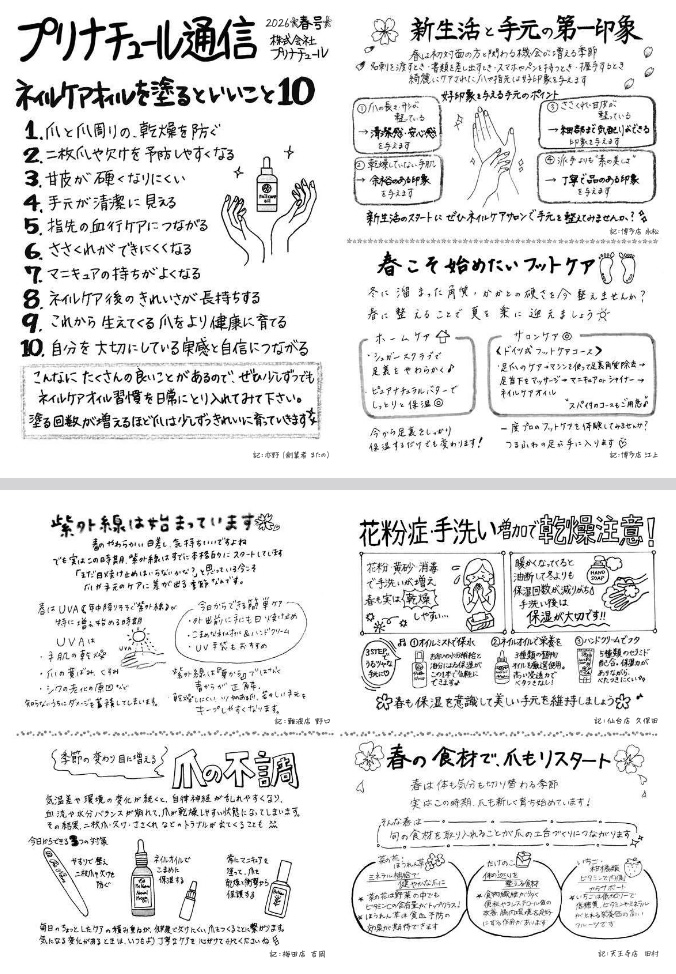 プリナチュール通信
2026 春号
株式会社
プリナチュール
ネイルケアオイルを塗るといいこと10
1. 爪と爪周りの、乾燥を防ぐ
2. 二枚爪や欠けを予防しやすくなる
3. 甘皮が硬くなりにくい
4. 手元が清潔に見える
5. 指先の血行ケアにつながる
6. ささくれができにくくなる
7. マニキュアの持ちがよくなる
8. ネイルケア後のきれいさが長持ちする
9. これから生えてくる爪をより健康に育てる
10. 自分を大切にしている実感と自信につながる
こんなにたくさんの良いことがあるので、ぜひ少しずつでも
ネイルケアオイル習慣を日常にとり入れてみて下さい。
塗る回数が増えるほど爪は少しずつきれいに育っていきます
新生活と手元の第一印象
春は初対面の方と関わる機会が増える季節
名刺を渡すとき・書類を差し出すとき・スマホやペンを持つとき・握手するとき
綺麗にケアされた爪や指先は好印象を与えます
好印象を与える手元のポイント
①爪の長さ・形が
整っている
→清潔感・安心感
を与えます
②乾燥していない手肌
→余裕のある印象
を与えます
③ささくれや甘皮が
整っている
→細部まで気配りができる
印象を与えます
④派手よりも"素の美しさ"
→丁寧で品のある印象
を与えます
新生活のスタートにぜひネイルケアサロンで手元を整えてみませんか?
記:博多店 永松
春こそ始めたいフットケア
冬に溜まった角質・かかとの硬さを今整えませんか?
春に整えることで夏を楽に迎えましょう
ホームケア
・シュガースクラブで
足裏をやわらかく♪
・ピュアナチュラルバターで
しっとりと保湿
サロンケア
《ドイツ式フットケアコース》
足爪のケア→マシンを使って足裏角質除去→
足首下をマッサージ→マニキュアorシャイナー→
ネイルケアオイル
"スパイクのコースもご用意♪
今から足裏をしっかり
保湿するだけでも変わります!
一度プロのフットケアを体験してみませんか?
つるふわの足に手に入ります
記:博多店 江上
紫外線は始まっています
春のやわらかい日差し、気持ちいいですよね
でも実はこの時期、紫外線はすでに本格的にスタートしてします
「まだ日焼け止めはいらないかな?」と思っている今こそ
爪や手元のケアに差が出る季節なんです。
春はUVA(年中降りそそぐ紫外線)が
特に増え始める時期
UVAは
・手肌の乾燥
・爪の黄ばみ、くすみ
・シワの老化の原因など
知らないうちにダメージを蓄積してしまいます。
UVA
今日からできる簡単ケア
・外出前に手にも日焼け止め
・こまめなネイルオイル&ハンドクリーム
・UV手袋もおすすめ
紫外線は「夏から」ではなく
春からが正解。
乾燥しにくい、ツヤのある爪、若々しい手元を
キープしやすくなります。
記:難波店 野口
花粉症・手洗い増加で乾燥注意!
花粉・黄砂・消毒
で手洗いが増え
春も実は乾燥
しやすい…
暖かくなってくると
油断して冬よりも
保湿回数が減りがち
手洗い後は
保湿が大切です!!
HAND
SOAP
3STEPで
うるツヤな
手元に
①オイルミストで保水
お肌の水分補給と
油分による保湿が
この1本で気軽に
できます
②ネイルオイルで栄養を
3種類の植物
オイルを厳選使用。
高い浸透力で
ベタつきなし!
③ハンドクリームでフタ
5種類のセラミド
配合。保湿力が
ありながら、
べたつきにくい
春も保湿を意識して美しい手元を維持しましょう
記:仙台店 久保田
季節の変わり目に増える
爪の不調
気温差や環境の変化が続くと、自律神経が乱れやすくなり、
血流や水分バランスが崩れて、爪が乾燥しやすい状態になってしまいます。
その結果、二枚爪・欠け・ささくれなどのトラブルが出てくることも
今日からできる3つの対策
やすりで整え
二枚爪や欠けを
防ぐ
ネイルオイルで
こまめに
保湿する
常にマニキュアを
塗って、爪を
乾燥や衝撃から
保護する
毎日のちょっとしたケアの積み重ねが、健康で欠けにくい爪をつくることに繋がります。
気になる変化があるときは、いつもより丁寧なケアを心がけてみてくださいね
記:梅田店 吉岡
春の食材で、爪もリスタート
春は体も気分も切り替わる季節
実はこの時期、爪も新しく育ち始めています!
そんな春は
旬の食材を取り入れることが爪の土台づくりにつながります
菜の花・
ほうれん草
ミネラル補給で
健やかな爪に
菜の花は野菜の中でも
ビタミンCの含有量がトップクラス!
ほうれん草は貧血予防の
効果が期待できます
たけのこ
体の巡りを
整える食材
いちご・
柑橘類
ビタミンで代謝
からサポート
記:天王寺店 田村